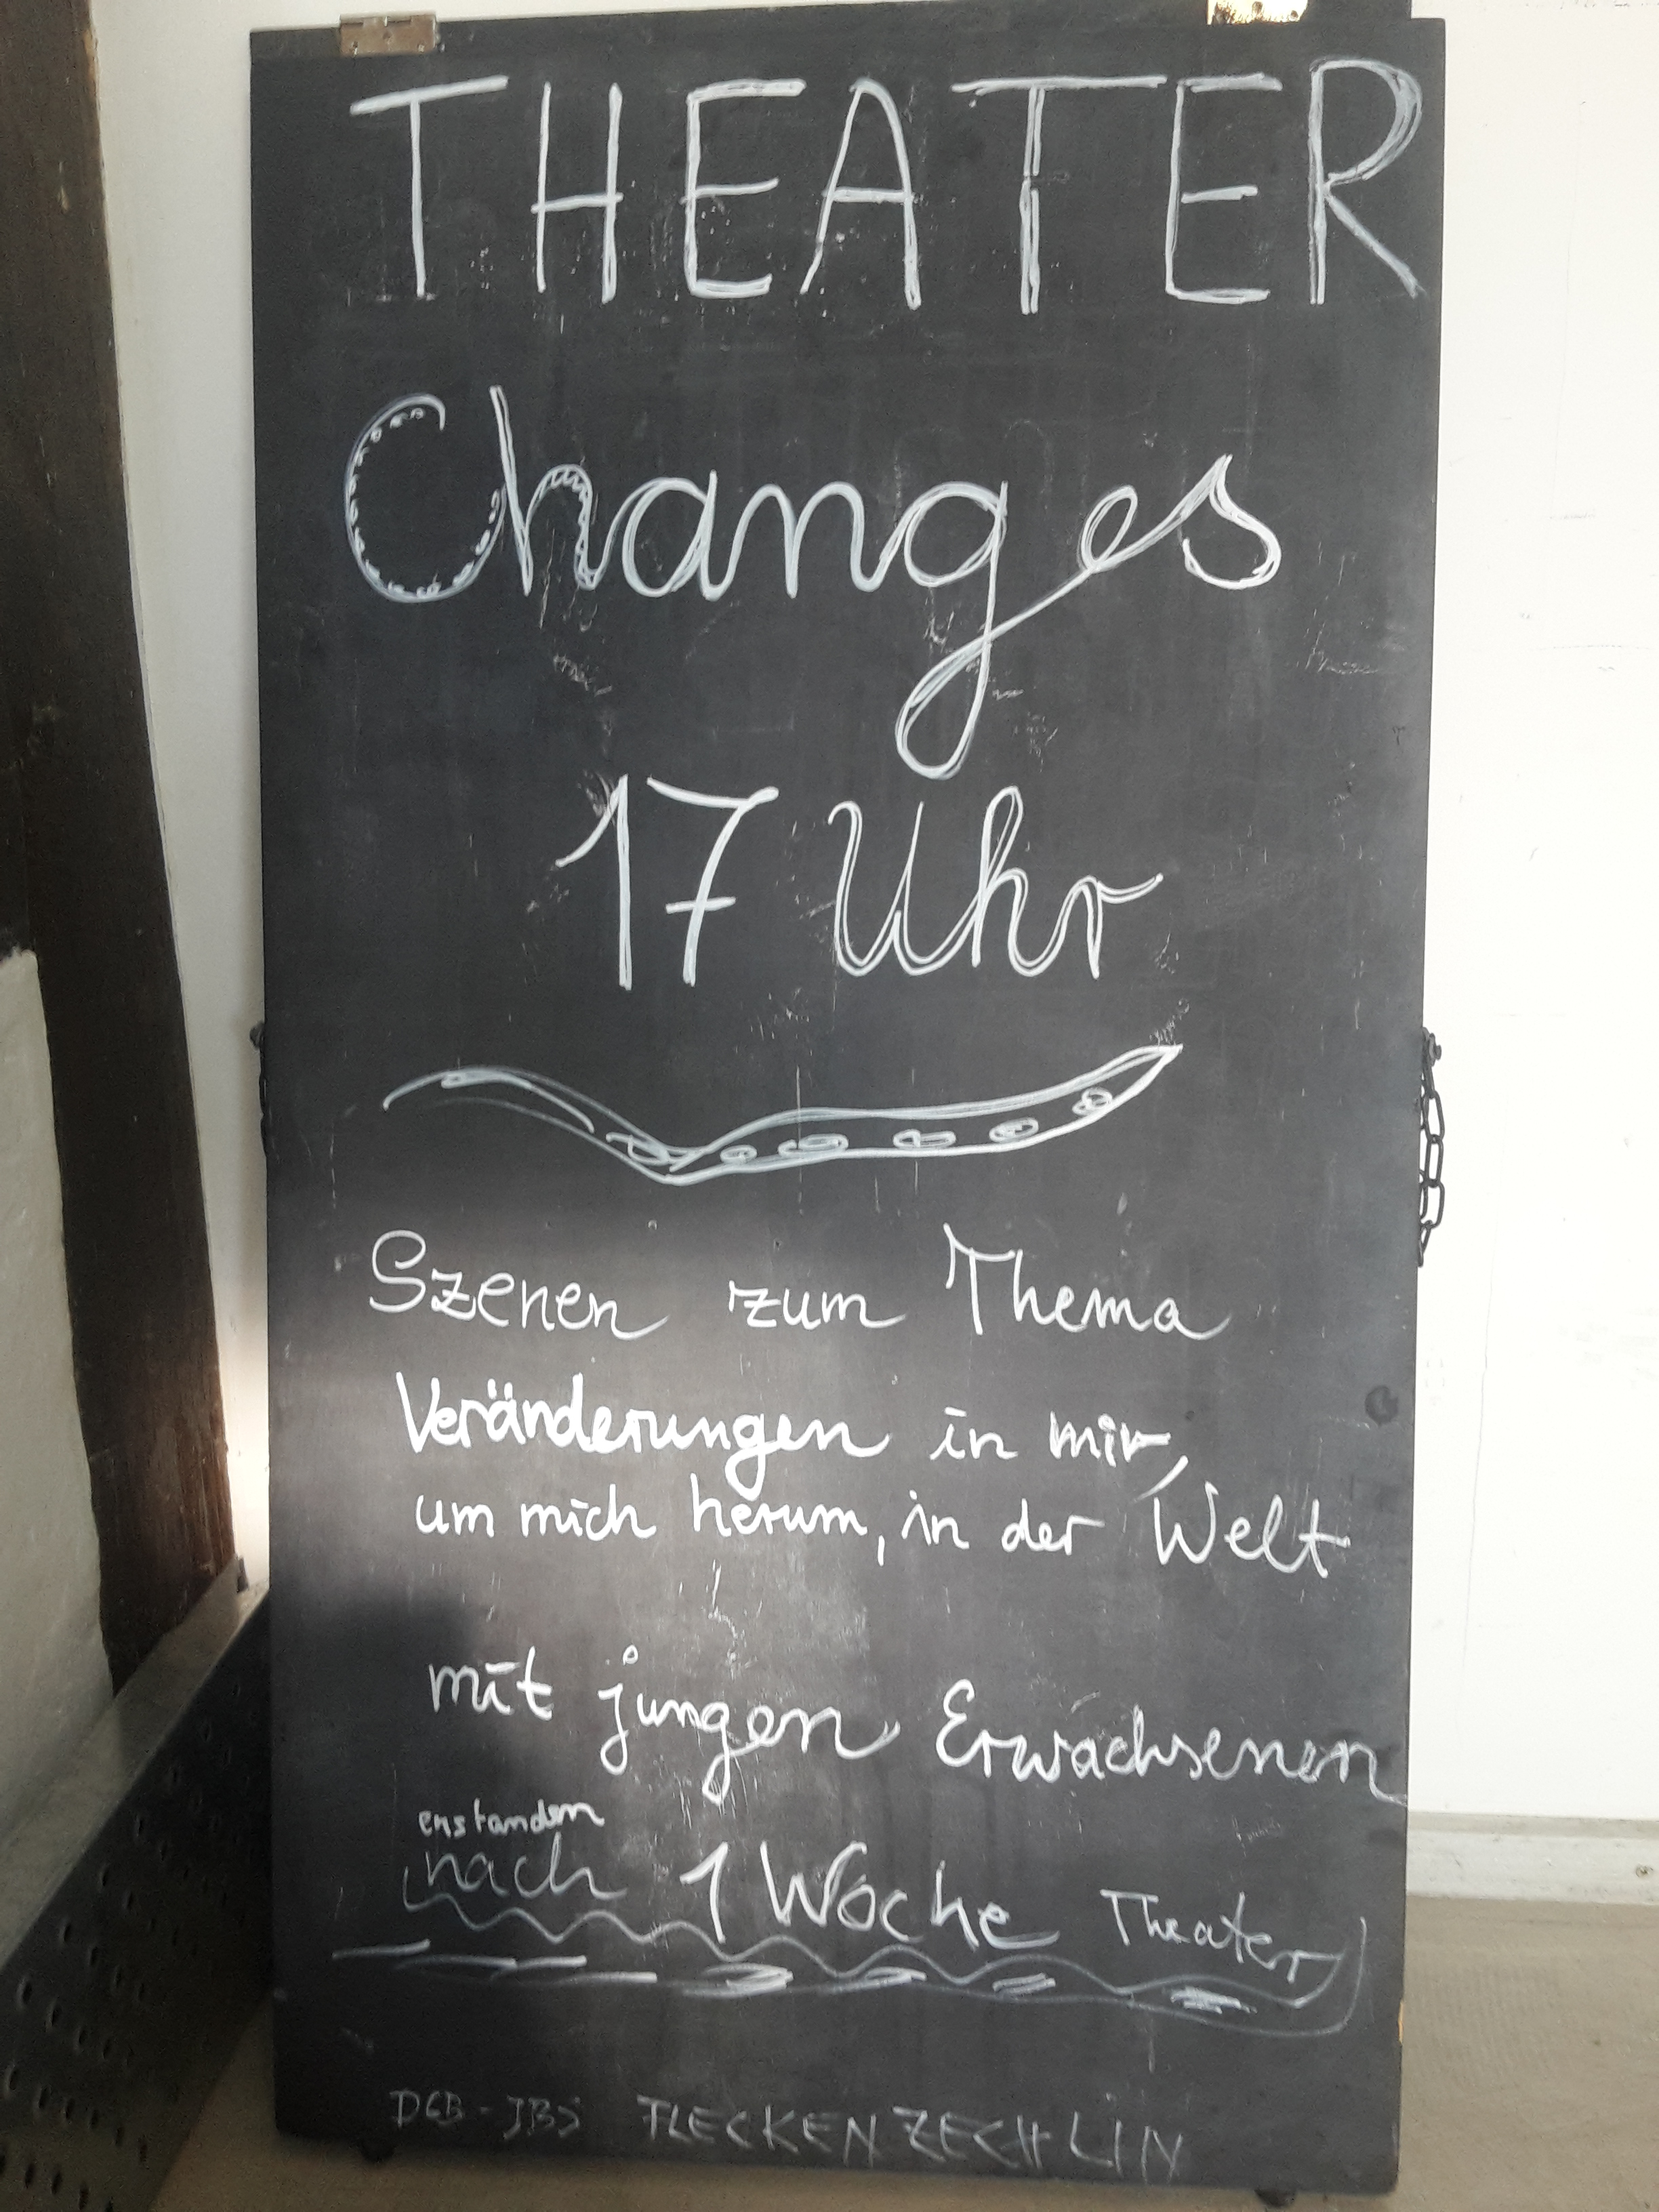 THEATER
Changes
17 Uhr
Szenen zum Thema
Veränderungen in mir,
um mich herum, in der Welt
mit jungen Erwachsenen
enstanden
nach 1 Woche Theater
DGB - JBS FLECKEN ZECHLIN